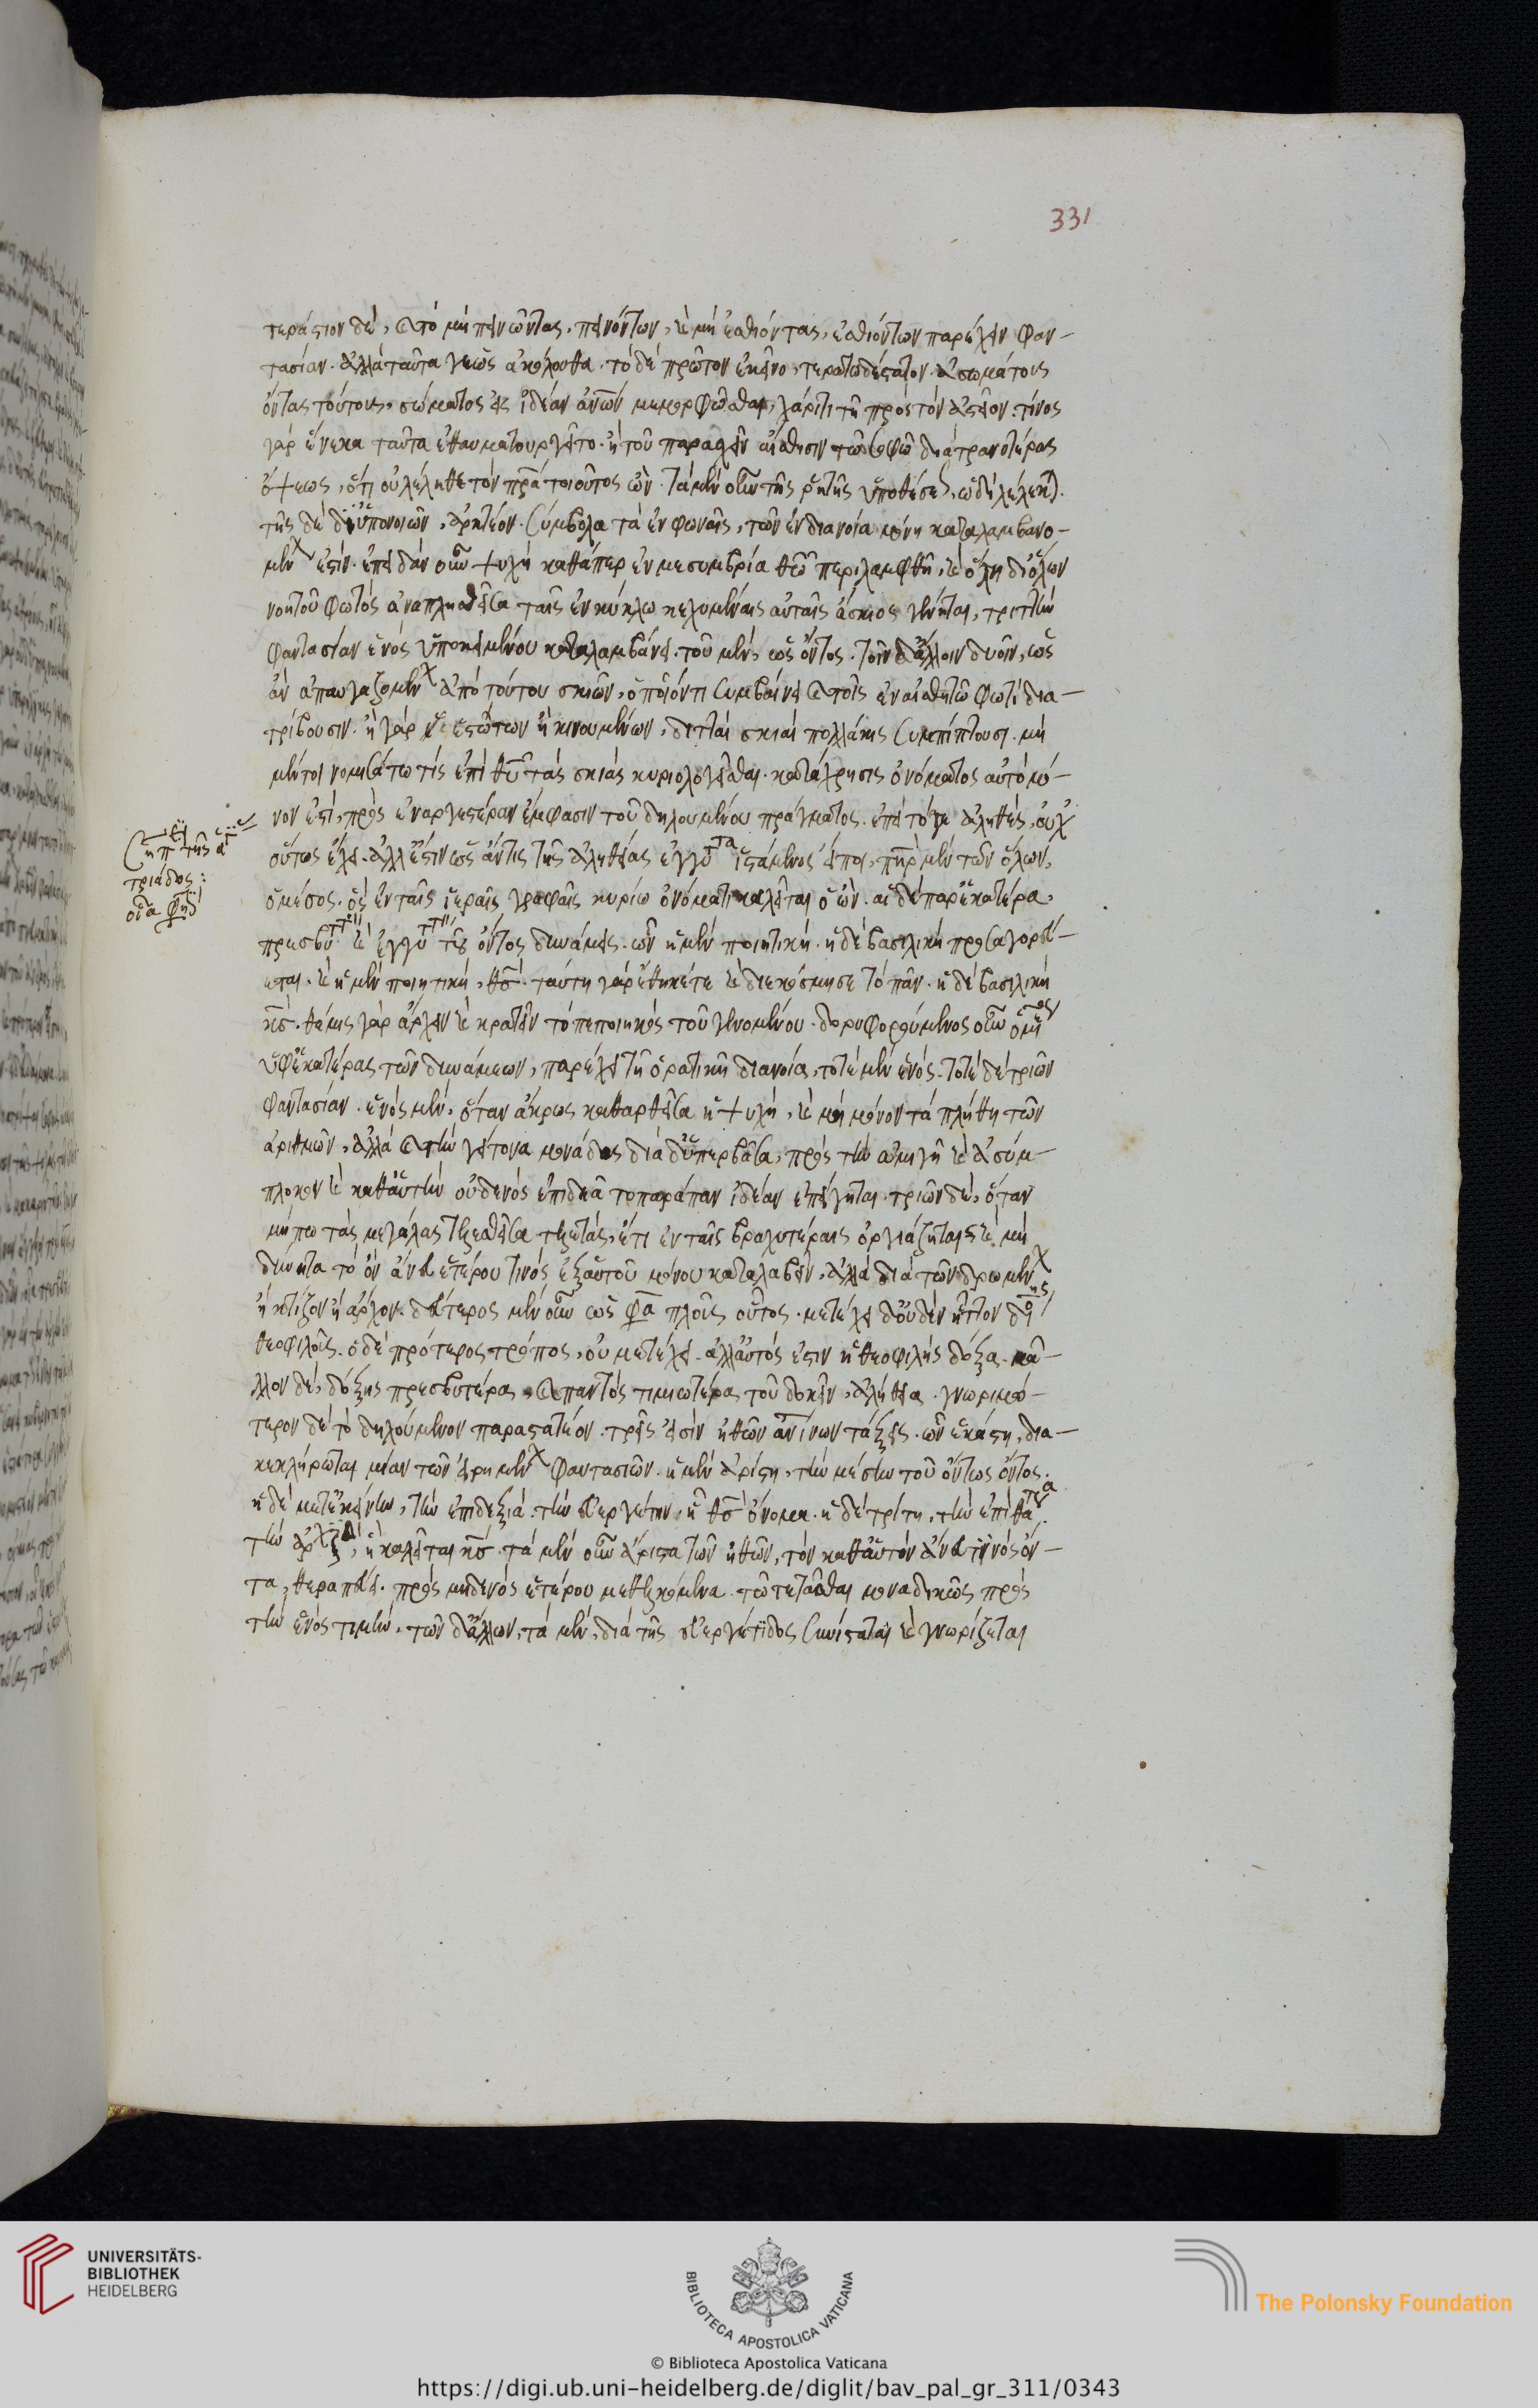 331
τεράστιον δὲ, καὶ τὸ μὴ πεινῶντας, πεινόντων, καὶ μὴ ἐσθιόντας, ἐσθιόντων παρέχειν φαν-
τασίαν. ἀλλὰ ταῦτα γε ὡς ἀκόλουθα. τὸ δὲ πρῶτον ἐκεῖνο, τερατωδέστατον. ἀσωμάτους
ὄντας τούτους, σώματος εἰς ἰδέαν ἀνων μεμορφῶσθαι, χάριτι τῆ πρὸς τὸν ἀστεῖον. τίνος
γὰρ ἕνεκα ταῦτα ἐθαυματουργεῖτο. ἢ τοῦ παρασχεῖν αἴσθησιν τῶ σοφῶ διὰ τρανοτέρας
ὄψεως, ὅτι οὐ λέληθε τὸν πρα τοιοῦτος ὤν. τὰ μὲν οὖν τῆς ῥητῆς ὑποθέσεως, ὧδε λελέχθω.
τῆς δὲ δι' ὑπονοιῶν, ἀρκτέον. σύμβολα τὰ ἐν φωναῖς, τῶν ἐν διανοία μόνη καταλαμβανο-
μένων ἐστίν. ἐπειδὰν οὖν ψυχὴ καθάπερ ἐν μεσημβρία θεῶ περιλαμφθῆ, καὶ ὅλη δι' ὅλων
νοητοῦ φωτὸς ἀναπλησθεῖσα ταῖς ἐν κύκλω κεχυμέναις αὐγαῖς ἄσκιος γένηται, τριττὴν
φαντασίαν ἑνὸς ὑποκειμένου καταλαμβάνει. τοῦ μὲν, ὡς ὄντος. τοῖν δ' ἄλλοιν δυοῖν, ὡς
ἂν ἀπαυγαζομένων ἀπὸ τούτου σκιῶν, ὁποῖόν τι συμβαίνει καὶ τοῖς ἐν αἰσθητῶ φωτὶ δια-
τρίβουσιν. ἢ γὰρ ἑστώτων ἢ κινουμένων, διτταὶ σκιαὶ πολλάκις συμπίπτουσι. μὴ
μέντοι νομισάτω τίς ἐπὶ θυ τὰς σκιὰς κυριολογεῖσθαι. κατάχρησις ὀνόματος αὐτὸ μό-
νον ἐστὶ, πρὸς ἐναργεστέραν ἔμφασιν τοῦ δηλουμένου πράγματος. ἐπεὶ τό γε ἀληθὲς, οὐχ
οὕτως ἔχει. ἀλλ' ἔστιν ὡς ἄν τις τῆς ἀληθείας ἐγγύτατα ἱστάμενος εἴποι, πηρ μὲν τῶν ὅλων,
ὁ μέσος. ὃς ἐν ταῖς ἱεραῖς γραφαῖς κυρίω ὀνόματι καλεῖται ὁ ὤν. αἱ δὲ παρ' ἑκάτερα,
πρεσβύταται καὶ ἐγγύταται τοῦ ὄντος δυνάμεις. ὧν ἡ μὲν ποιητικὴ. ἡ δὲ βασιλικὴ προσαγορεύ-
εται. καὶ ἡ μὲν ποιητικὴ, θς. ταύτη γὰρ ἔθηκέ τε καὶ διεκόσμησε τὸ πᾶν. ἡ δὲ βασιλικὴ
κς. θέμις γὰρ ἄρχειν καὶ κρατεῖν τὸ πεποιηκὸς τοῦ γενομένου. δορυφορούμενος οὖν ὁ μέσος
ὑφ' ἑκατέρας τῶν δυνάμεων, παρέχει τῆ ὁρατικῆ διανοία, τοτὲ μὲν ἑνὸς. τοτὲ δὲ τριῶν
φαντασίαν. ἑνὸς μὲν, ὅταν ἄκρως καθαρθεῖσα ἡ ψυχὴ, καὶ μὴ μόνον τὰ πλήθη τῶν
ἀριθμῶν, ἀλλὰ καὶ τὴν γείτονα μονάδος δυάδ' ὑπερβᾶσα, πρὸς τὴν ἀμιγῆ καὶ ἀσύμ-
πλοκον καὶ καθ' αὑτὴν οὐδενὸς ἐπιδεᾶ τοπαράπαν ἰδέαν ἐπείγηται. τριῶν δὲ, ὅταν
μήπω τὰς μεγάλας τελεσθεῖσα τελετὰς, ἔτι ἐν ταῖς βραχυτέραις ὀργιάζηται καὶ μὴ
δύνηται τὸ ὂν ἄνευ ἑτέρου τινὸς ἐξ αὑτοῦ μόνου καταλαβεῖν, ἀλλὰ διὰ τῶν δρωμένων
ἢ κτίζον ἢ ἄρχον. δεύτερος μὲν οὖν ὡς φα πλοῦς οὗτος. μετέχει δ' οὐδὲν ἧττον δόξης
θεοφιλοῦς. ὁ δὲ πρότερος τρόπος, οὐ μετέχει. ἀλλ' αὐτός ἐστιν ἡ θεοφιλὴς δόξα. μᾶ-
λλον δὲ, δόξης πρεσβυτέρα, καὶ παντὸς τιμιωτέρα τοῦ δοκεῖν, ἀλήθεια. γνωριμώ-
τερον δὲ τὸ δηλούμενον παραστατέον. τρεῖς εἰσὶν ἠθῶν ἀνίνων τάξεις. ὧν ἑκάστη, δια-
κεκλήρωται μίαν τῶν εἰρημένων φαντασιῶν. ἡ μὲν ἀρίστη, τὴν μέσην τοῦ ὄντως ὄντος.
ἡ δὲ μετ' ἐκείνην, τὴν ἐπιδεξιὰ. τὴν εὐεργέτιν, ἧ θς ὄνομα. ἡ δὲ τρίτη, τὴν ἐπὶ θάτερα.
τὴν ἀρχικὴν, ἣ καλεῖται κς. τὰ μὲν οὖν ἄριστα τῶν ἠθῶν, τὸν καθ' αὑτὸν ἄνευ τινὸς ὄν-
τα, θεραπεύει. πρὸς μηδενὸς ἑτέρου μεθελκόμενα. τῶ τετάσθαι μοναδικῶς πρὸς
τὴν ἑνὸς τιμὴν. τῶν δ' ἄλλων, τὰ μὲν, διὰ τῆς εὐεργέτιδος συνίσταται καὶ γνωρίζεται
τριάδος:
UNIVERSITÄTS-
BIBLIOTHEK
HEIDELBERG
BIBLIOTECA APOSTOLICA VATICANA
The Polonsky Foundation
© Biblioteca Apostolica Vaticana
https://digi.ub.uni-heidelberg.de/diglit/bav_pal_gr_311/0343